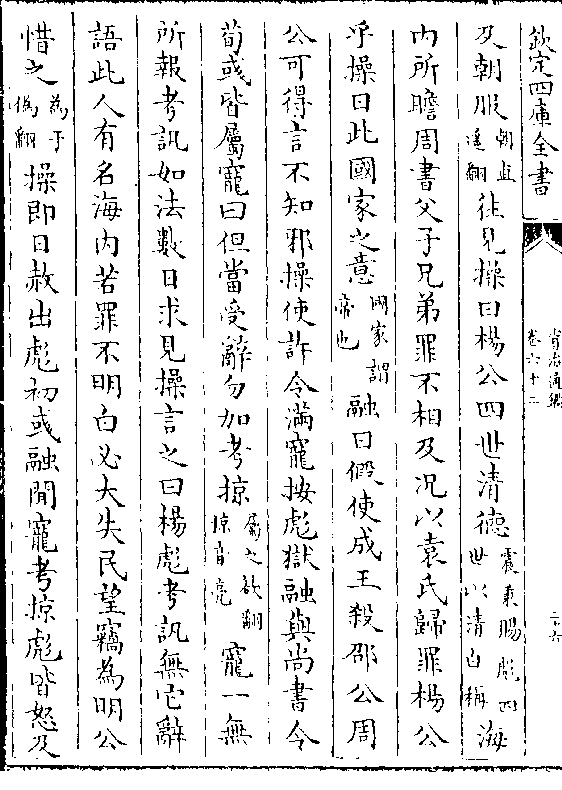 欽定四庫全書
資治通鑑
卷六十二
二十六
及朝服朝直遥翻往見操曰楊公四世清德震秉賜彪四世以清白稱海
内所瞻周書父子兄弟罪不相及况以袁氏歸罪楊公
乎操曰此國家之意國家謂帝也融曰假使成王殺邵公周
公可得言不知邪操使許令滿寵按彪獄融與尚書令
荀彧皆屬寵曰但當受辭勿加考掠屬之欲翻掠音亮寵一無
所報考訊如法數日求見操言之曰楊彪考訊無它辭
語此人有名海内若罪不明白必大失民望竊為明公
惜之為于偽翻操即日赦出彪初彧融聞寵考掠彪皆怒及